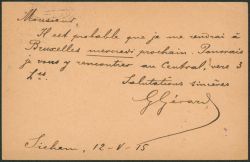 Monsieur,
Il est probable que je me rendrai à
Bruxelles mercredi prochain. Pourrais
je vous y rencontrer au Central, vers 3
hres.
Salutations sincères
G Gérard
Sichem, 12-V-15